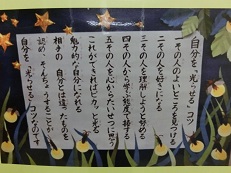 「自分を、光らせる」コツ
一その人のよいところを見つける
二その人を好きになる
三その人を理解しようと努める
四その人から学ぶ態度で接する
五その人を心からたいせつに
これができればピカッと光る
魅力的な自分になれる
相手の自分とは違ったものを
認め そんちょうすることが
自分を、光らせる、コツなのです